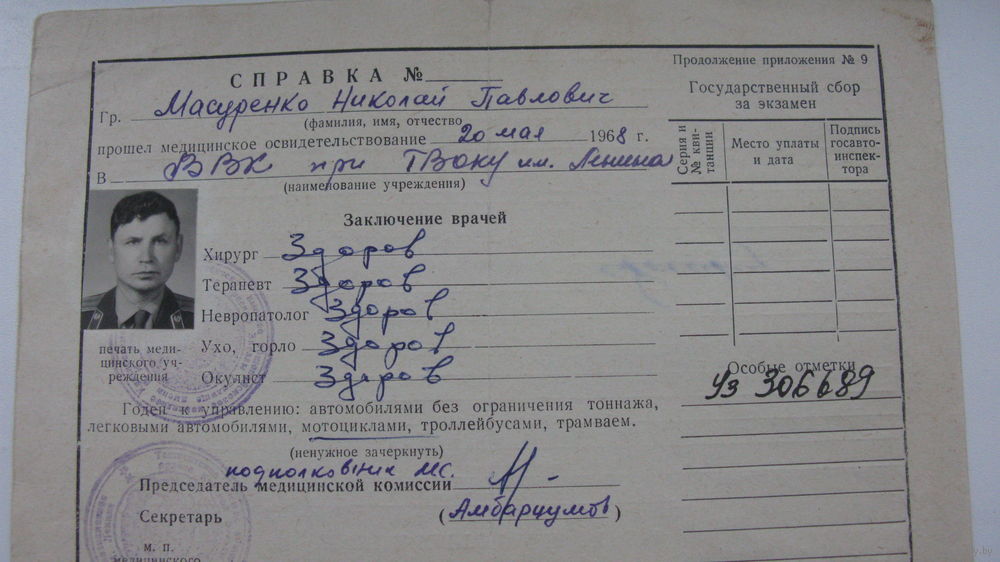 СПРАВКА №
Гр. Масуренко Николай Павлович
(фамилия, имя, отчество
прошел медицинское освидетельствование 20 мая 1968 г.
В ВВК при ТВОКУ им. Ленина
(наименование учреждения)
Заключение врачей
Хирург Здоров
Терапевт Здоров
Невропатолог Здоров
Ухо, горло Здоров
Окулист Здоров
печать меди-
цинского уч-
реждения
Годен к управлению: автомобилями без ограничения тоннажа,
легковыми автомобилями, мотоциклами, троллейбусами, трамваем.
(ненужное зачеркнуть)
подполковник мс.
Председатель медицинской комиссии
Секретарь (Амбарцумов)
м. п.
медицинского
Продолжение приложения № 9
Государственный сбор
за экзамен
Серия и
№ кви-
танции
Место уплаты
и дата
Подпись
госавто-
инспек-
тора
Особые отметки
Уз 306689